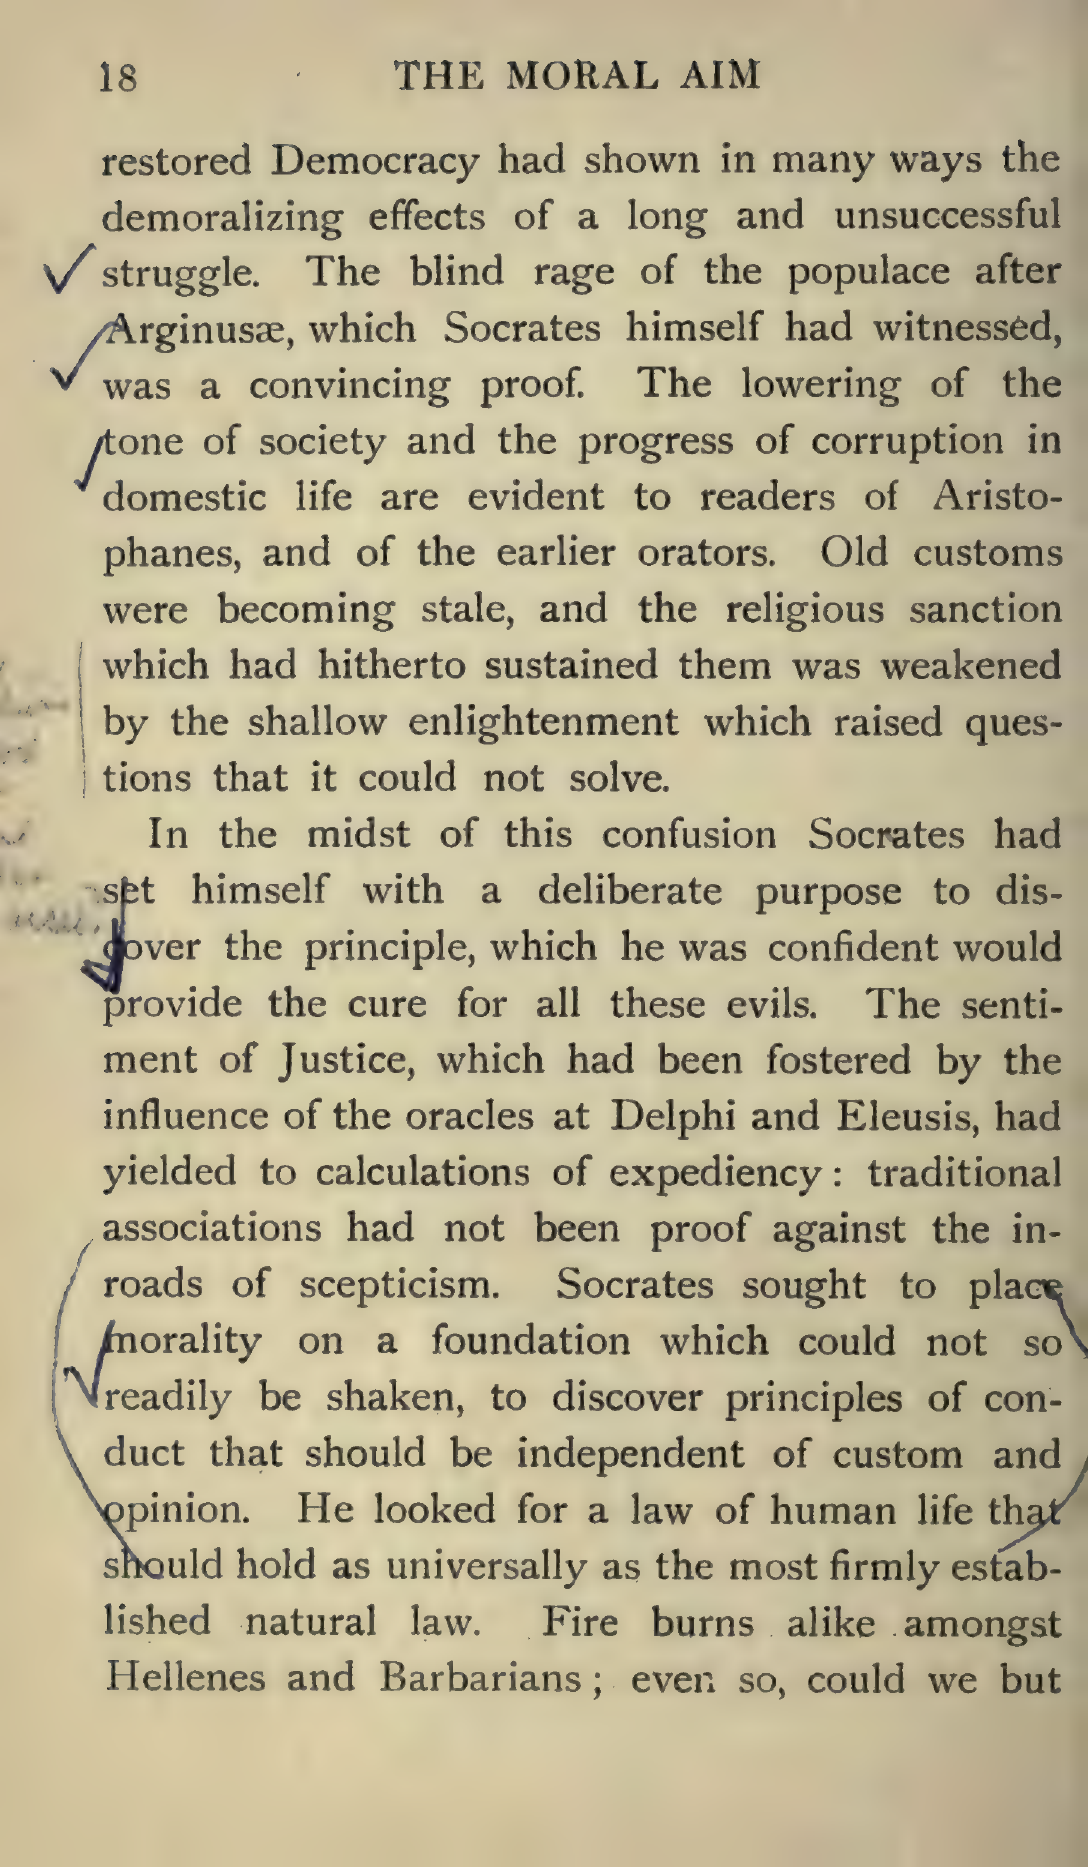 18 THE MORAL AIM
restored Democracy had shown in many ways the
demoralizing effects of a long and unsuccessful
struggle. The blind rage of the populace after
Arginusæ, which Socrates himself had witnessed,
was a convincing proof. The lowering of the
tone of society and the progress of corruption in
domestic life are evident to readers of Aristo-
phanes, and of the earlier orators. Old customs
were becoming stale, and the religious sanction
which had hitherto sustained them was weakened
by the shallow enlightenment which raised ques-
tions that it could not solve.
In the midst of this confusion Socrates had
set himself with a deliberate purpose to dis-
cover the principle, which he was confident would
provide the cure for all these evils. The senti-
ment of Justice, which had been fostered by the
influence of the oracles at Delphi and Eleusis, had
yielded to calculations of expediency : traditional
associations had not been proof against the in-
roads of scepticism. Socrates sought to place
morality on a foundation which could not so
readily be shaken, to discover principles of con-
duct that should be independent of custom and
opinion. He looked for a law of human life that
should hold as universally as the most firmly estab-
lished natural law. Fire burns alike amongst
Hellenes and Barbarians ; even so, could we but